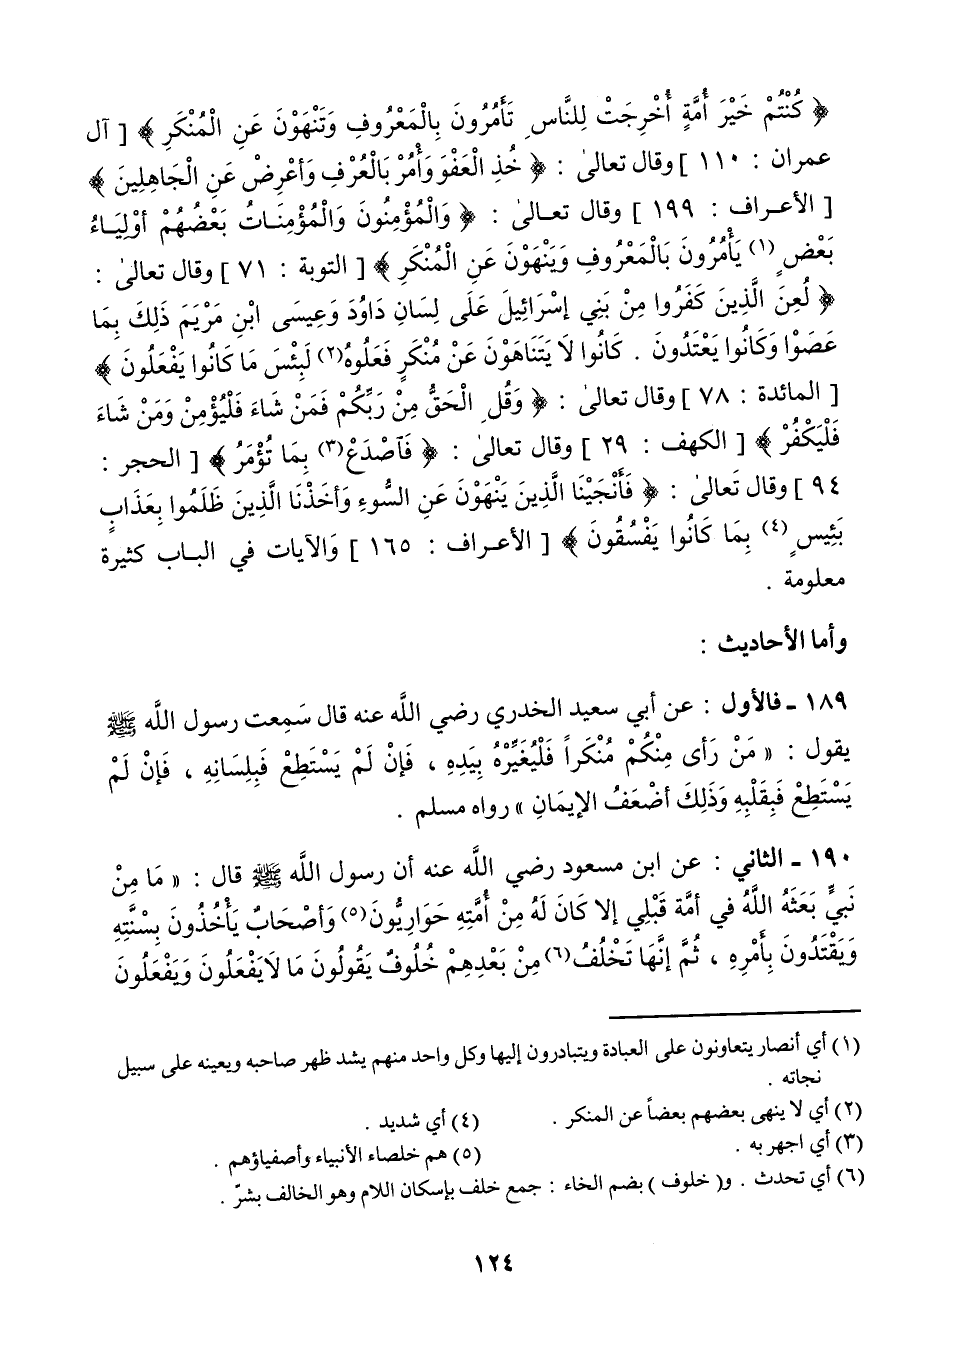 ﴿ كُنْتُمْ خَيْرَ أُمَّةٍ أُخْرِجَتْ لِلنَّاسِ تَأْمُرُونَ بِالْمَعْرُوفِ وَتَنْهَوْنَ عَنِ الْمُنْكَرِ ﴾ [ آل
عمران : ١١٠ ] وقال تعالىٰ : ﴿ خُذِ الْعَفْوَ وَأْمُرْ بَالْعُرْفِ وَأعْرِضْ عَنِ الْجَاهِلِينَ ﴾
[ الأعراف : ١٩٩ ] وقال تعالىٰ : ﴿ وَالْمُؤْمِنُونَ وَالْمُؤْمِنَاتُ بَعْضُهُمْ أوْلِيَاءُ
بَعْضٍ (١) يَأْمُرُونَ بَالْمَعْرُوفِ وَيَنْهَوْنَ عَنِ الْمُنْكَرِ ﴾ [ التوبة : ٧١ ] وقال تعالىٰ :
﴿ لُعِنَ الَّذِينَ كَفَرُوا مِنْ بَنِي إسْرَائِيلَ عَلَى لِسَانِ دَاوُدَ وَعِيسَى ابْنِ مَرْيَمَ ذَلِكَ بِمَا
عَصَوْا وَكَانُوا يَعْتَدُونَ . كَانُوا لَا يَتَنَاهَوْنَ عَنْ مُنْكَرٍ فَعَلُوهُ (٢) لَبِئْسَ مَا كَانُوا يَفْعَلُونَ ﴾
[ المائدة : ٧٨ ] وقال تعالىٰ : ﴿ وَقُلِ الْحَقُّ مِنْ رَبِّكُمْ فَمَنْ شَاءَ فَلْيُؤْمِنْ وَمَنْ شَاءَ
فَلْيَكْفُرْ ﴾ [ الكهف : ٢٩ ] وقال تعالىٰ : ﴿ فَآصْدَعْ (٣) بِمَا تُؤْمَرُ ﴾ [ الحجر :
٩٤ ] وقال تَعالىٰ : ﴿ فَأَنْجَيْنَا الَّذِينَ يَنْهَوْنَ عَنِ السُّوءِ وَأَخَذْنَا الَّذِينَ ظَلَمُوا بِعَذَابٍ
بَئِيسٍ (٤) بِمَا كَانُوا يَفْسُقُونَ ﴾ [ الأعراف : ١٦٥ ] وَالآيات في الباب كثيرة
معلومة .
وأما الأحاديث :
١٨٩ ـ فالأول : عن أبي سعيد الخدري رضي اللَّه عنه قال سَمِعت رسول اللَّه ﷺ
يقول : « مَنْ رَأى مِنْكُمْ مُنْكَراً فَلْيُغَيِّرْهُ بِيَدِهِ ، فَإنْ لَمْ يَسْتَطِعْ فَبِلِسَانِهِ ، فَإنْ لَمْ
يَسْتَطِعْ فَبِقَلْبِهِ وَذَلِكَ أضْعَفُ الإيمَانِ » رواه مسلم .
١٩٠ ـ الثاني : عن ابن مسعود رضي اللَّه عنه أن رسول اللَّه ﷺ قال : « مَا مِنْ
نَبيٍّ بَعَثَهُ اللَّهُ في أمَّة قَبْلِي إلا كَانَ لَهُ مِنْ أُمَّتِهِ حَوَارِيُّونَ (٥) وَأصْحَابٌ يَأْخُذُونَ بِسُنَّتِهِ
وَيَقْتَدُونَ بِأَمْرِهِ ، ثُمَّ إنَّهَا تَخْلُفُ (٦) مِنْ بَعْدِهِمْ خُلُوفٌ يَقُولُونَ مَا لَا يَفْعَلُونَ وَيَفْعَلُونَ
(١) أي أنصار يتعاونون على العبادة ويتبادرون إليها وكل واحد منهم يشد ظهر صاحبه ويعينه على سبيل
نجاته .
(٢) أي لا ينهى بعضهم بعضاً عن المنكر . (٤) أي شديد .
(٣) أي اجهر به . (٥) هم خلصاء الأنبياء وأصفياؤهم .
(٦) أي تحدث . و( خلوف ) بضم الخاء : جمع خلف بإسكان اللام وهو الخالف بشرّ .
١٢٤